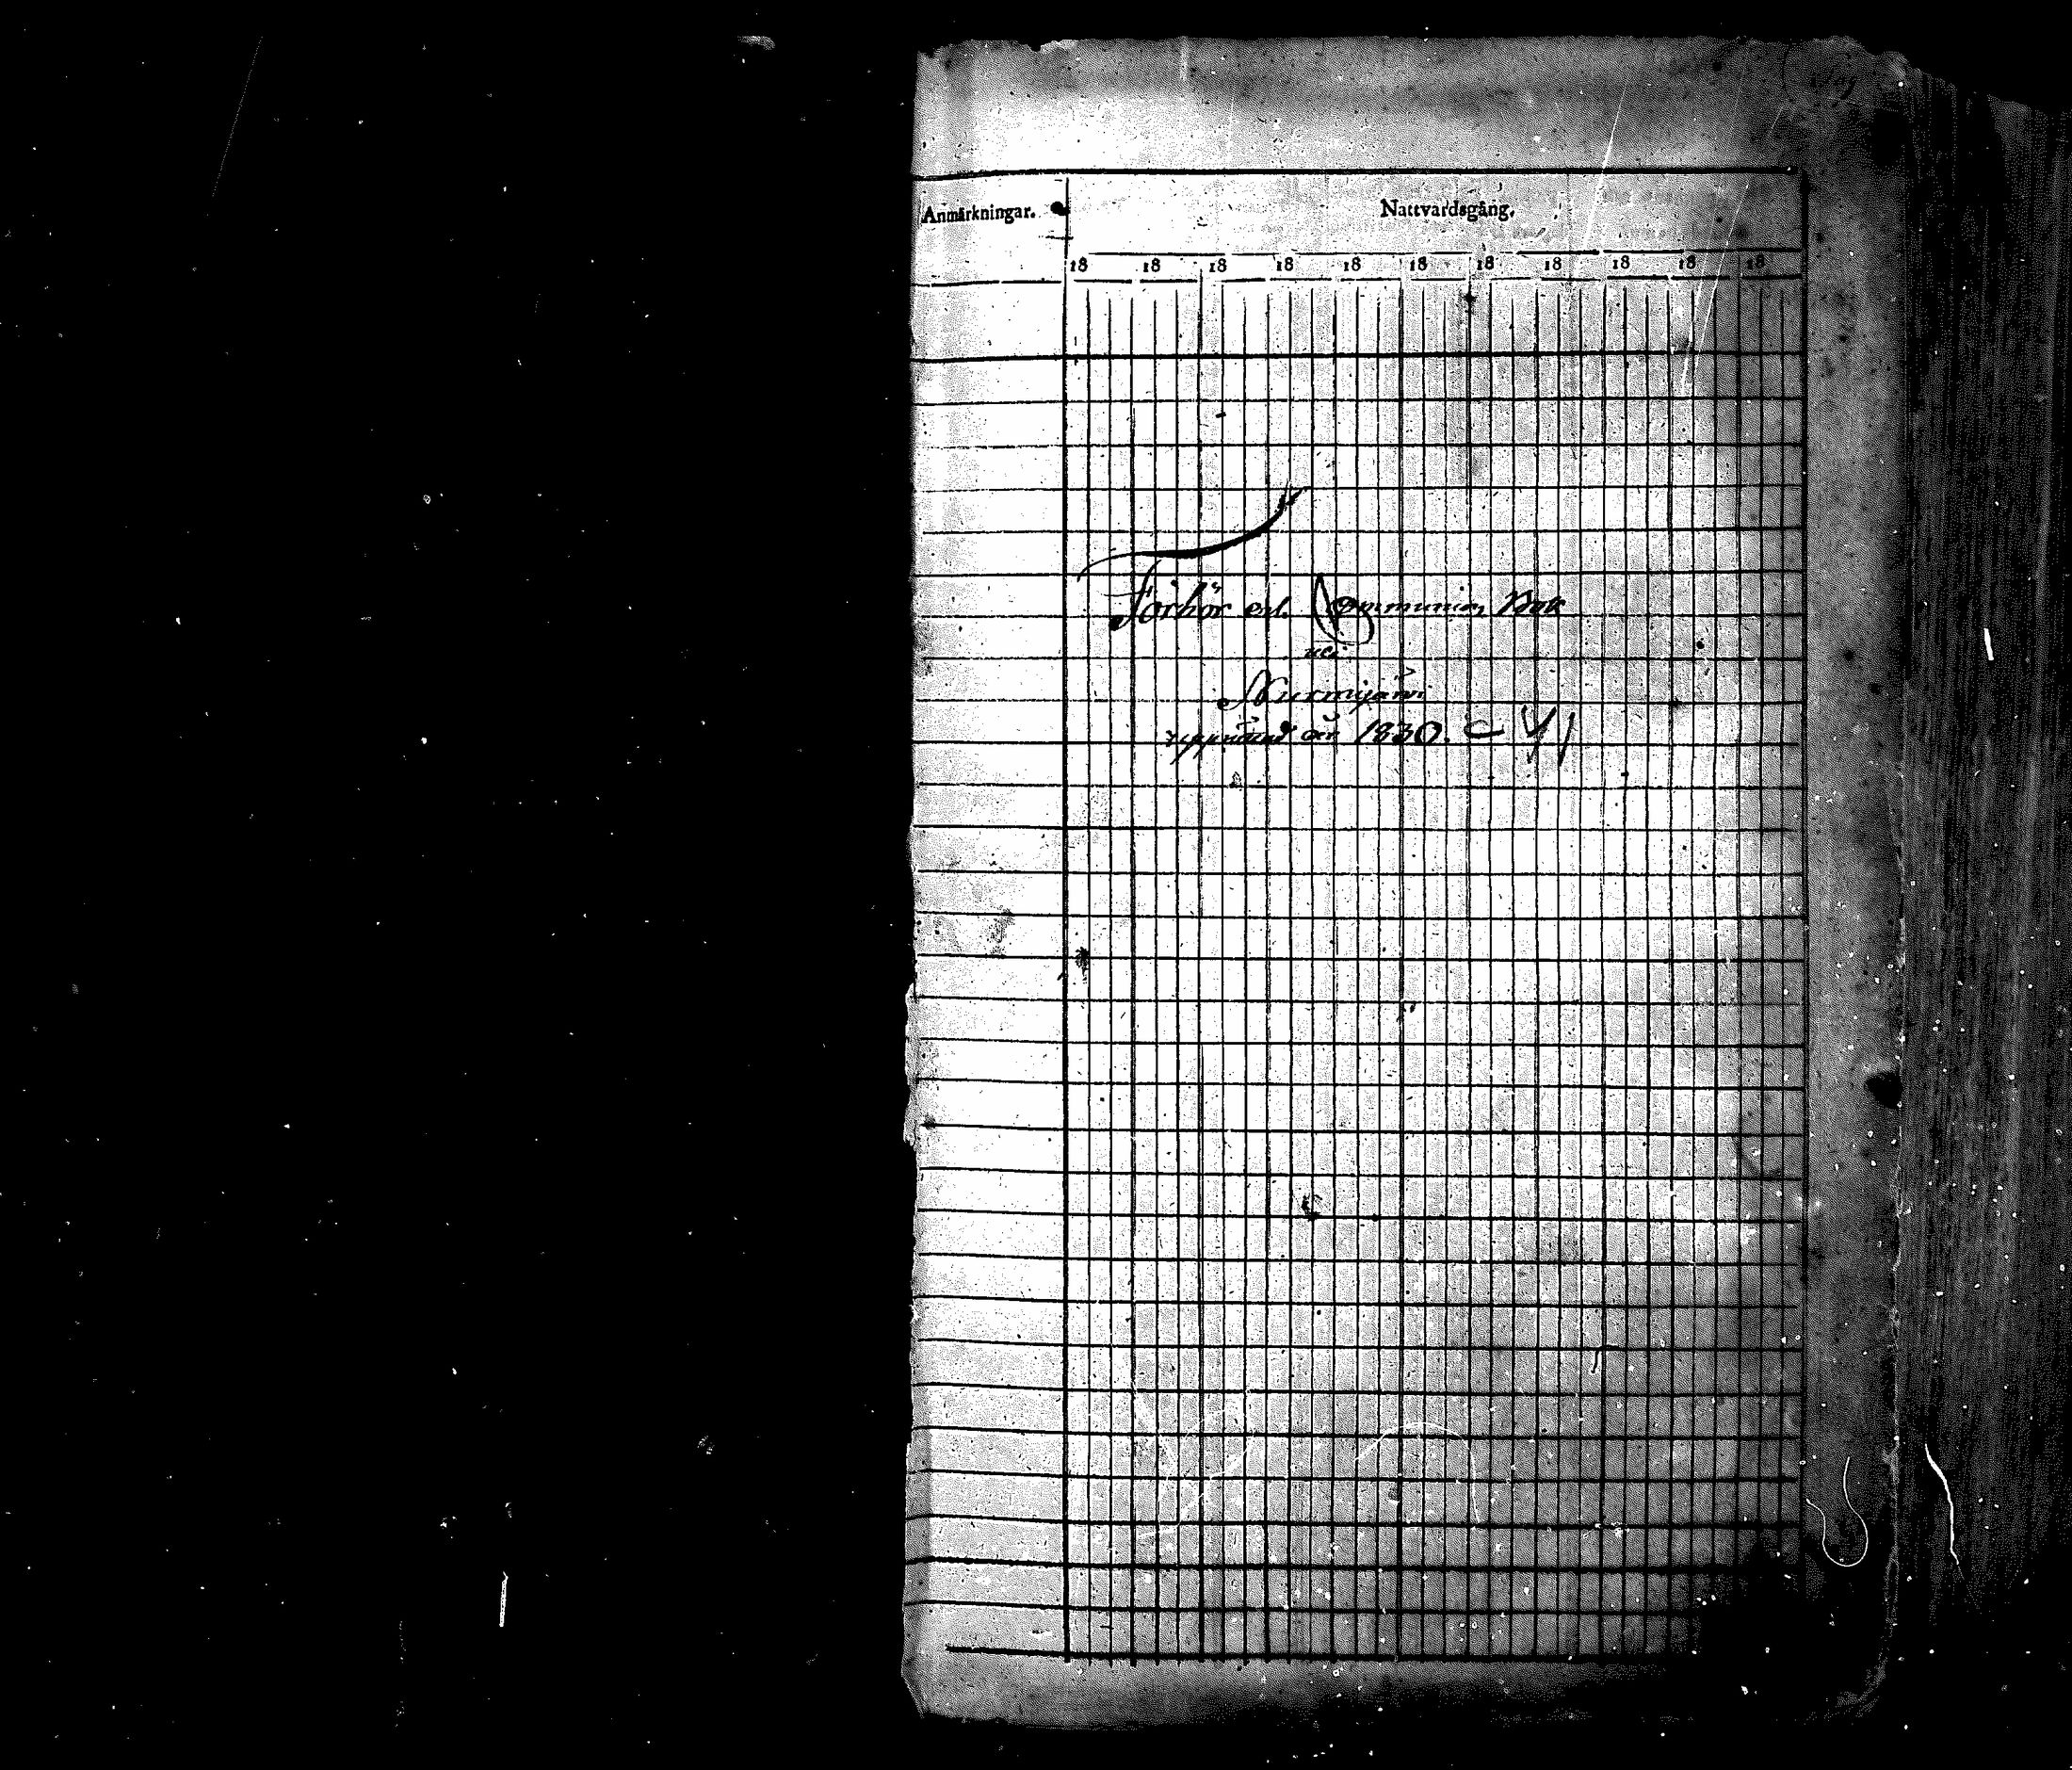 Anmärkningar.
Nattvardsgång.
18 18 18 18 18 18 18 18 18 18 18
Förhör och Communion Bok
uti
Nurmijärvi
upprättad år 1830.